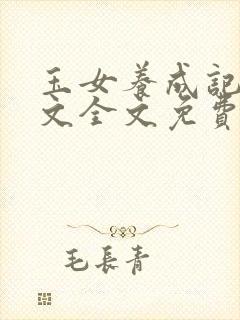 玉女养成記
文全文免費
毛長青